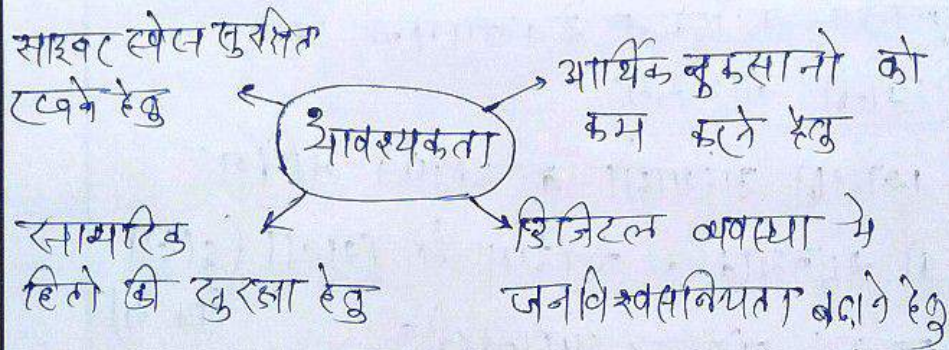 साइबर स्पेस सुरक्षित
रखने हेतु
आर्थिक नुकसानो को
कम करने हेतु
आवश्यकता
सामरिक
हितो की सुरक्षा हेतु
डिजिटल व्यवस्था मे
जनविश्वसनियता बढ़ाने हेतु